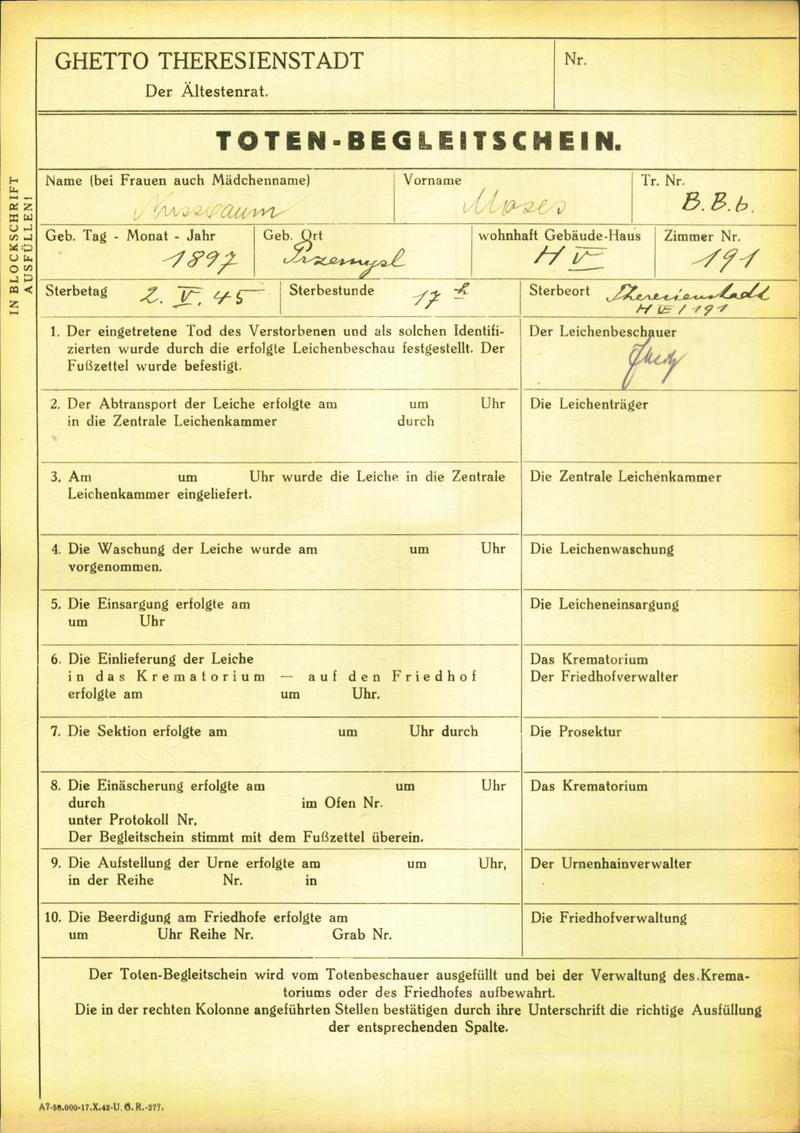 GHETTO THERESIENSTADT
Der Ältestenrat.
Nr.
TOTEN-BEGLEITSCHEIN.
IN BLOCKSCHRIFT
AUSFÜLLEN!
Name (bei Frauen auch Mädchenname)
Nussbaum
Vorname
Moses
Tr. Nr.
B.B.6.
Geb. Tag - Monat - Jahr
1897
Geb. Ort
Przemysl
wohnhaft Gebäude-Haus
H V
Zimmer Nr.
191
Sterbetag 2. V. 45
Sterbestunde 17 h
Sterbeort Theresienstadt
H V / 191
1. Der eingetretene Tod des Verstorbenen und als solchen Identifi-
zierten wurde durch die erfolgte Leichenbeschau festgestellt. Der
Fußzettel wurde befestigt.
Der Leichenbeschauer
2. Der Abtransport der Leiche erfolgte am um Uhr
in die Zentrale Leichenkammer durch
Die Leichenträger
3. Am um Uhr wurde die Leiche in die Zentrale
Leichenkammer eingeliefert.
Die Zentrale Leichenkammer
4. Die Waschung der Leiche wurde am um Uhr
vorgenommen.
Die Leichenwaschung
5. Die Einsargung erfolgte am
um Uhr
Die Leicheneinsargung
6. Die Einlieferung der Leiche
in das Krematorium — auf den Friedhof
erfolgte am um Uhr.
Das Krematorium
Der Friedhofverwalter
7. Die Sektion erfolgte am um Uhr durch
Die Prosektur
8. Die Einäscherung erfolgte am um Uhr
durch im Ofen Nr.
unter Protokoll Nr.
Der Begleitschein stimmt mit dem Fußzettel überein.
Das Krematorium
9. Die Aufstellung der Urne erfolgte am um Uhr,
in der Reihe Nr. in
Der Urnenhainverwalter
10. Die Beerdigung am Friedhofe erfolgte am
um Uhr Reihe Nr. Grab Nr.
Die Friedhofverwaltung
Der Toten-Begleitschein wird vom Totenbeschauer ausgefüllt und bei der Verwaltung des Krema-
toriums oder des Friedhofes aufbewahrt.
Die in der rechten Kolonne angeführten Stellen bestätigen durch ihre Unterschrift die richtige Ausfüllung
der entsprechenden Spalte.
A7-50.000-17.X.42-U. G. R.-277.